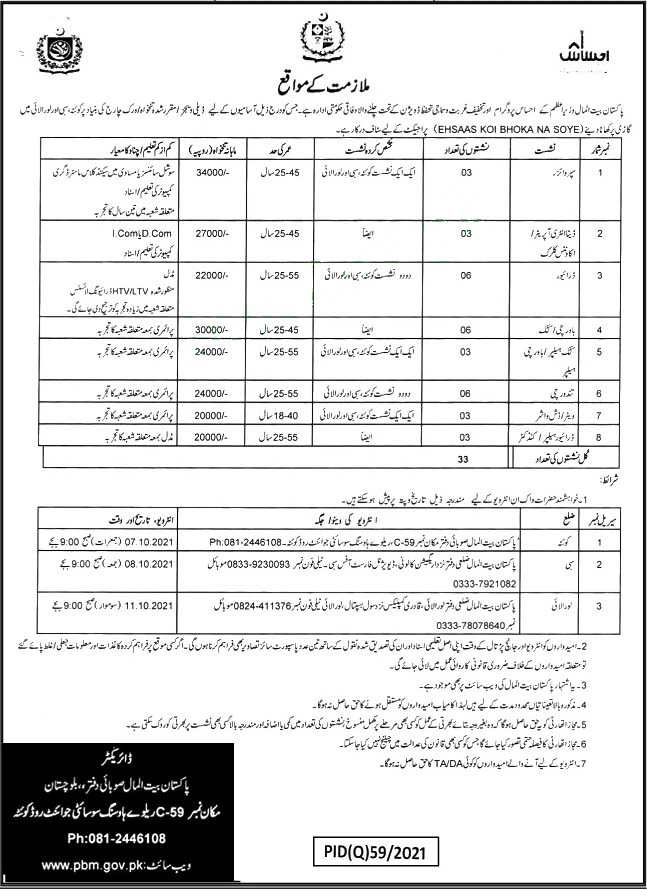 احساس
ملازمت کے مواقع
پاکستان بیت المال وزیراعظم کے احساس پروگرام اور تخفیف غربت و سماجی تحفظ ڈویژن کے تحت چلنے والا وفاقی حکومتی ادارہ ہے۔ جس کو درج ذیل آسامیوں کے لیے ڈیلی ویجز/مقرر شدہ تنخواہ/ورک چارج کی بنیاد پر کوئٹہ، سبی اور لورالائی میں
گاڑی پر کھانا دینے (EHSAAS KOI BHOKA NA SOYE) پراجیکٹ کے لیے سٹاف درکار ہے۔
نمبر شمار نشست نشستوں کی تعداد مختص کردہ نشست عمر کی حد ماہانہ تنخواہ (روپیہ) کم از کم تعلیم/اسناد کا معیار
1 سپروائزر 03 ایک ایک نشست کوئٹہ، سبی اور لورالائی 25-45 سال 34000/- سوشل سائنسز یا مساوی میں سیکنڈ کلاس ماسٹر ڈگری
کمپیوٹر کی تعلیم/اسناد
متعلقہ شعبہ میں تین سال کا تجربہ
2 ڈیٹا انٹری آپریٹر/ 03 ایضاً 25-45 سال 27000/- D.Com یا I.Com
اکاونٹس کلرک کمپیوٹر کی تعلیم/اسناد
3 ڈرائیور 06 دو دو نشست کوئٹہ، سبی اور لورالائی 25-55 سال 22000/- مڈل
منظور شدہ HTV/LTV ڈرائیونگ لائسنس
متعلقہ شعبہ میں زیادہ تجربہ کو ترجیح دی جائے گی۔
4 باورچی/کک 06 ایضاً 25-45 سال 30000/- پرائمری بمعہ متعلقہ شعبہ کا تجربہ
5 کک ہیلپر/باورچی 03 ایک ایک نشست کوئٹہ، سبی اور لورالائی 25-55 سال 24000/- پرائمری بمعہ متعلقہ شعبہ کا تجربہ
ہیلپر
6 تندورچی 06 دو دو نشست کوئٹہ، سبی اور لورالائی 25-55 سال 24000/- پرائمری بمعہ متعلقہ شعبہ کا تجربہ
7 ویٹر/ڈش واشر 03 ایک ایک نشست کوئٹہ، سبی اور لورالائی 18-40 سال 20000/- پرائمری بمعہ متعلقہ شعبہ کا تجربہ
8 ڈرائیور ہیلپر/کنڈکٹر 03 ایضاً 25-55 سال 20000/- مڈل بمعہ متعلقہ شعبہ کا تجربہ
کل نشستوں کی تعداد 33
شرائط:
1- خواہشمند حضرات واک ان انٹرویو کے لیے مندرجہ ذیل تاریخ و پتہ پر پیش ہو سکتے ہیں۔
سیریل نمبر ضلع انٹرویو کی وینو/جگہ انٹرویو، تاریخ اور وقت
1 کوئٹہ پاکستان بیت المال صوبائی دفتر مکان نمبر C-59، ریلوے ہاوسنگ سوسائٹی جوائنٹ روڈ کوئٹہ۔Ph:081-2446108 07.10.2021 (جمعرات) صبح 9:00 بجے
2 سبی پاکستان بیت المال ضلعی دفتر نزد ایریگیشن کالونی، ڈویژنل فارسٹ آفس سبی۔ ٹیلی فون نمبر 0833-9230093 موبائل 08.10.2021 (جمعہ) صبح 9:00 بجے
0333-7921082
3 لورالائی پاکستان بیت المال ضلعی دفتر لورالائی، قادری کمپلیکس نزد سول ہسپتال، لورالائی ٹیلی فون نمبر 0824-411376 موبائل 11.10.2021 (سوموار) صبح 9:00 بجے
نمبر 0333-78078640
2- امیدواروں کو انٹرویو اور جانچ پڑتال کے وقت اپنی اصل تعلیمی اسناد اور ان کی تصدیق شدہ نقول کے ساتھ تین عدد پاسپورٹ سائز تصاویر بھی فراہم کرنا ہوں گی۔ اگر کسی موقع پر فراہم کردہ کاغذات اور معلومات جعلی/غلط پائے گئے
تو متعلقہ امیدواروں کے خلاف ضروری قانونی کاروائی عمل میں لائی جائے گی۔
3- یہ اشتہار پاکستان بیت المال کی ویب سائٹ پر بھی موجود ہے۔
4- مذکورہ بالا تعیناتیاں محدود مدت کے لیے ہیں لہذا کامیاب امیدواروں کو مستقل ہونے کا حق حاصل نہ ہوگا۔
5- مجاز اتھارٹی کو یہ حق حاصل ہوگا کہ وہ بغیر وجہ بتائے بھرتی کے عمل کو کسی بھی مرحلے پر مکمل منسوخ، نشستوں کی تعداد میں کمی یا اضافہ اور مندرجہ بالا کسی بھی نشست پر بھرتی کو روک سکتی ہے۔
6- مجاز اتھارٹی کا فیصلہ حتمی تصور کیا جائے گا جس کو کسی بھی قانون کی عدالت میں چیلنج نہیں کیا جا سکتا۔
7- انٹرویو کے لیے آنے والے امیدواروں کو کوئی TA/DA کا حق حاصل نہ ہوگا۔
ڈائریکٹر
پاکستان بیت المال صوبائی دفتر، بلوچستان
مکان نمبر C-59 ریلوے ہاوسنگ سوسائٹی جوائنٹ روڈ کوئٹہ
Ph:081-2446108
ویب سائٹ: www.pbm.gov.pk
PID(Q)59/2021